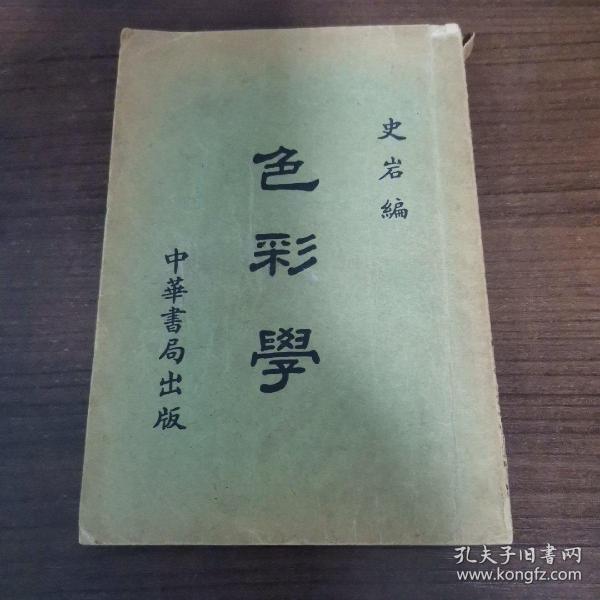 史岩編
色彩學
中華書局出版
孔夫子旧书网
www.kongfz.com